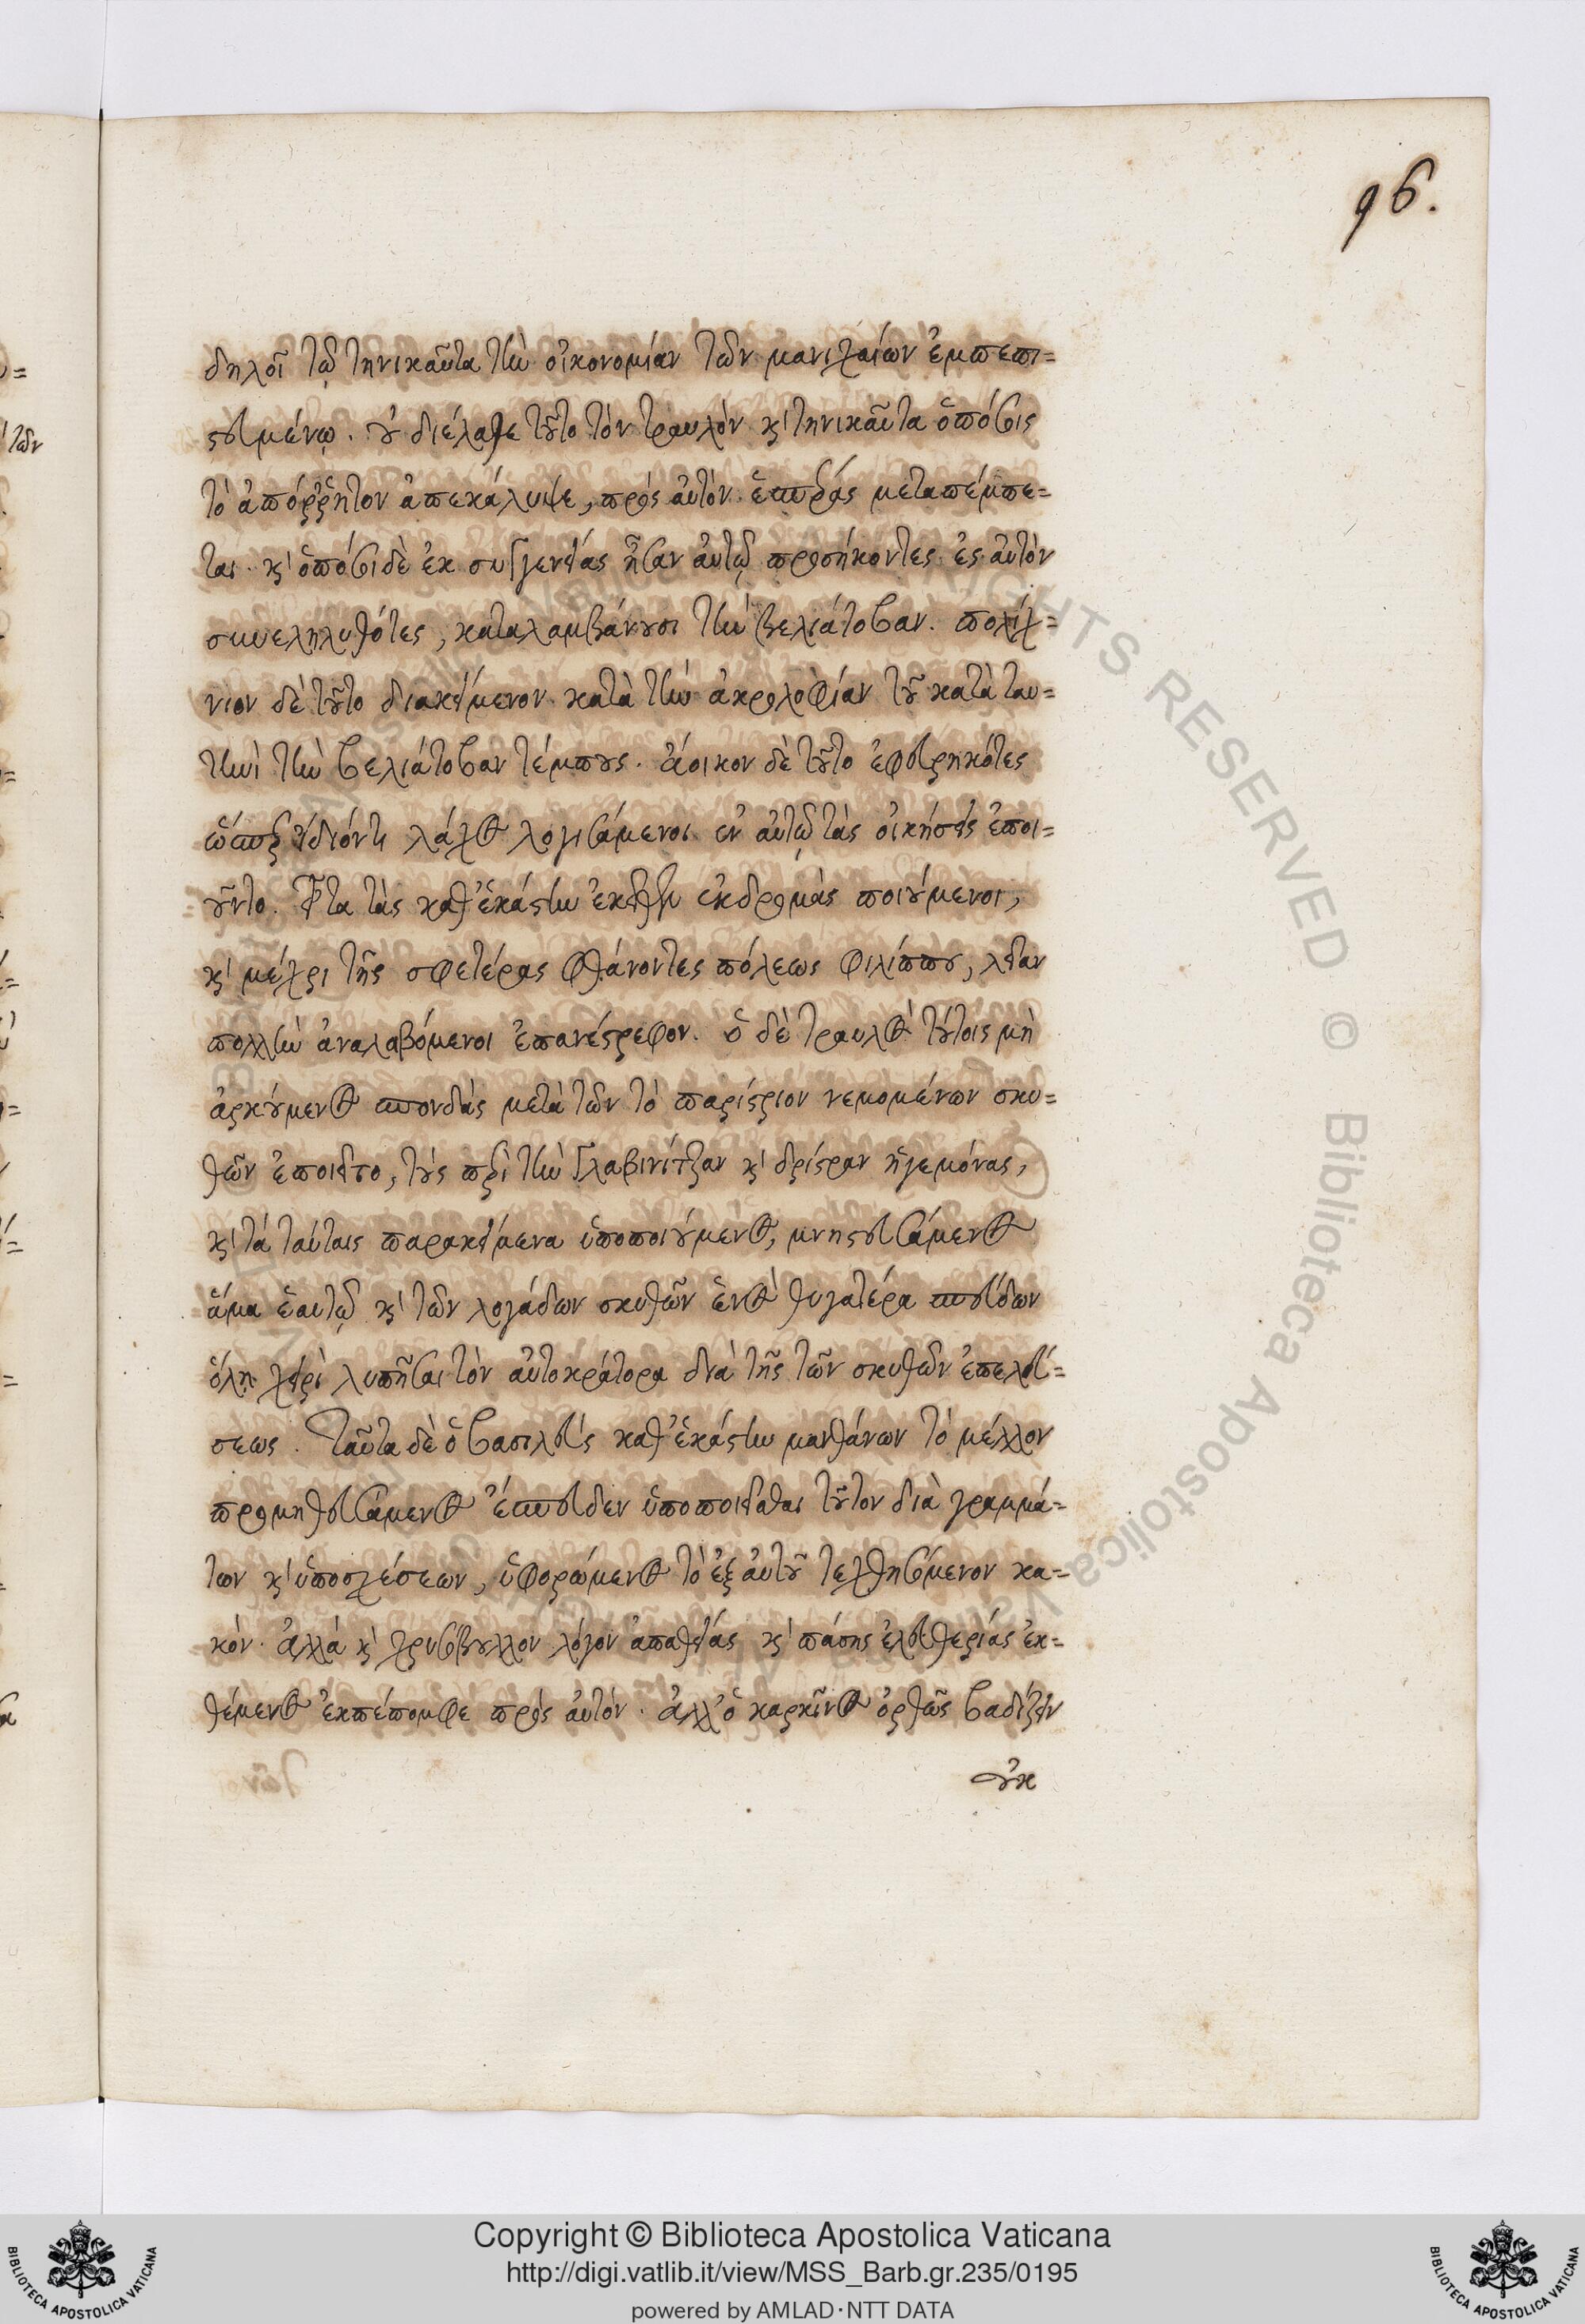 96.
δηλοῖ τῷ τηνικαῦτα τὴν οἰκονομίαν τῶν μανιχαίων ἐμπεπι=
στευμένῳ. οὐ διέλαθε τοῦτο τὸν τραυλὸν κ̀ τηνικαῦτα ὁπόσοις
τὸ ἀπόῤῥητον ἀπεκάλυψε, πρὸς αὐτὸν ἐπισπεύσας μεταπέμπε=
ται. κ̀ ὁπόσοι δὲ ἐκ συγγενείας ἦσαν αὐτῷ προσήκοντες ἐς αὐτὸν
συνεληλυθότες, καταλαμβάνουσι τὴν βελιάτοβαν. πολίχ=
νιον δὲ τοῦτο διακείμενον κατὰ τὴν ἀκρολοφίαν τοῦ κατὰ ταυ=
τηνὶ τὴν βελιάτοβαν τέμπους. ἄοικον δὲ τοῦτο ἐφευρηκότες
ὥσπερ ἴδιόν τι λάχος λογισάμενοι ἐν αὐτῷ τὰς οἰκήσεις ἐποι=
οῦντο. εἶτα τὰς καθ' ἑκάστην ἐκεῖθεν ἐκδρομὰς ποιούμενοι,
κ̀ μέχρι τῆς σφετέρας φθάνοντες πόλεως φιλίππου, λείαν
πολλὴν ἀναλαβόμενοι ἐπανέστρεφον. ὁ δὲ τραυλὸς τούτοις μὴ
ἀρκούμενος σπονδὰς μετὰ τῶν τὸ παρίστριον νεμομένων σκυ=
θῶν ἐποιεῖτο, τοὺς περὶ τὴν Γλαβινίτζαν κ̀ δρίστραν ἡγεμόνας,
κ̀ τὰ ταύταις παρακείμενα ὑποποιούμενος, μνηστευσάμενος
ἅμα ἑαυτῷ κ̀ τῶν λογάδων σκυθῶν ἑνὸς θυγατέρα σπεύδων
ὅλῃ χειρὶ λυπῆσαι τὸν αὐτοκράτορα διὰ τῆς τῶν σκυθῶν ἐπελεύ=
σεως. Ταῦτα δὲ ὁ βασιλεὺς καθ' ἑκάστην μανθάνων τὸ μέλλον
προμηθευσάμενος ἔσπευδεν ὑποποιεῖσθαι τοῦτον διὰ γραμμά=
των κ̀ ὑποσχέσεων, ὑφορώμενος τὸ ἐξ αὐτοῦ τεχθησόμενον κα=
κόν. ἀλλὰ κ̀ χρυσόβουλλον λόγον ἀπαθείας κ̀ πάσης ἐλευθερίας ἐκ=
θέμενος ἐκπέπομφε πρὸς αὐτόν. ἀλλ' ὁ καρκῖνος ὀρθῶς βαδίζειν
οὐκ
Copyright © Biblioteca Apostolica Vaticana
http://digi.vatlib.it/view/MSS_Barb.gr.235/0195
powered by AMLAD·NTT DATA